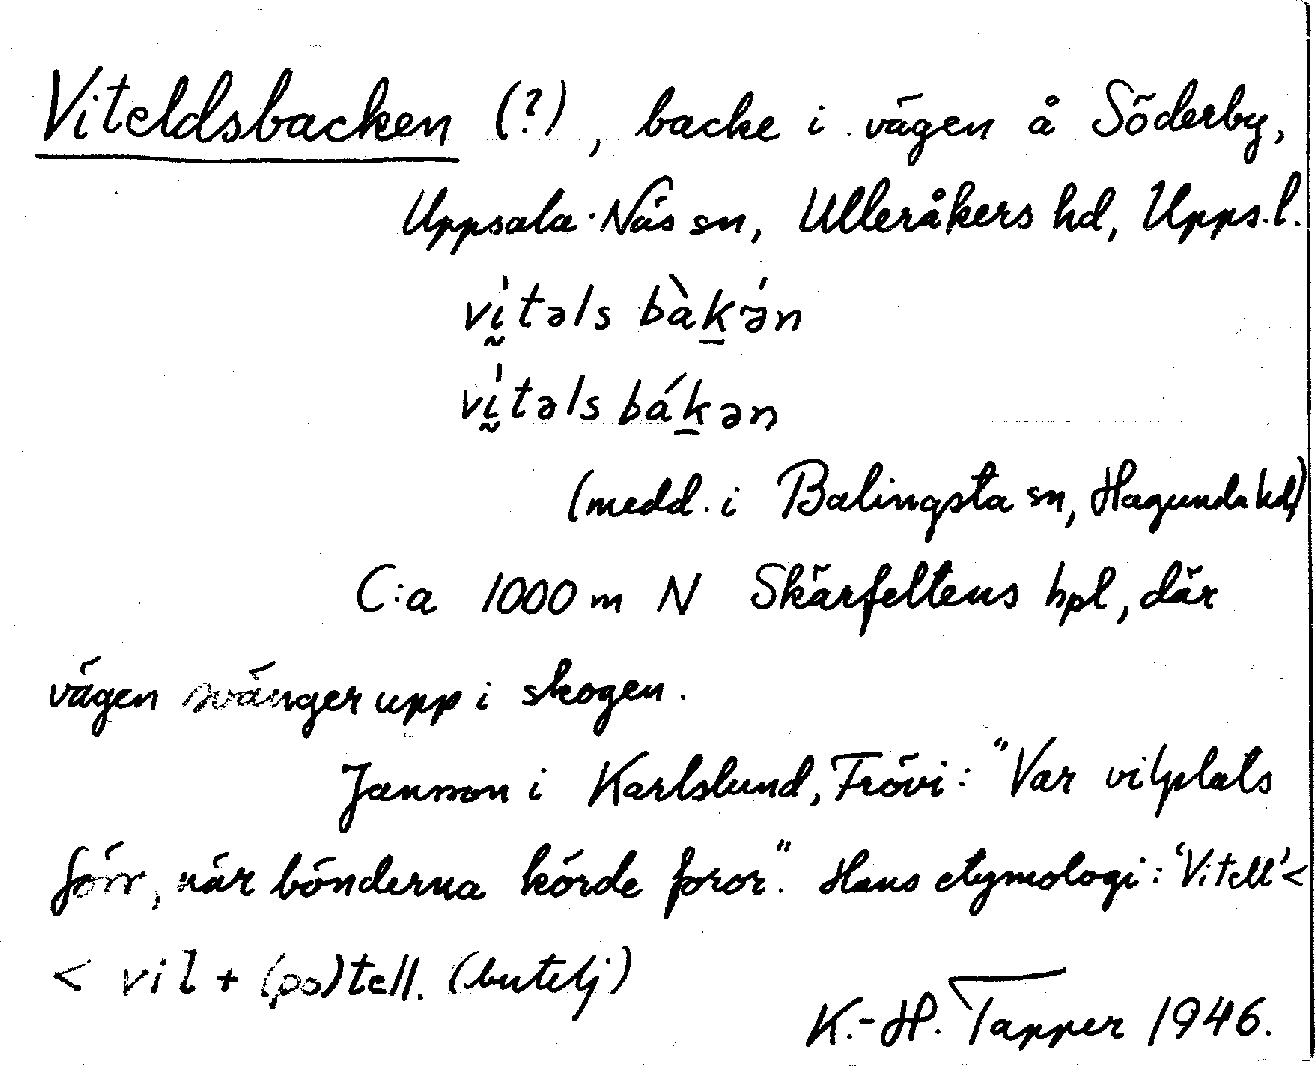 Viteldsbacken (?), backe i vägen å Söderby,
Uppsala-Näs sn, Ulleråkers hd, Upps.l.
vḭ̍təls bàḵə́n
vḭ̍təls báḵən
(medd. i Balingsta sn, Hagunda hd)
C:a 1000 m N Skärfeltens hpl, där
vägen svänger upp i skogen.
Jansson i Karlslund, Frövi: "Var vilplats
förr, när bönderna körde foror". Hans etymologi: 'Vitell' <
< vil + (po)tell. (butelj)
K.-H. Tapper 1946.